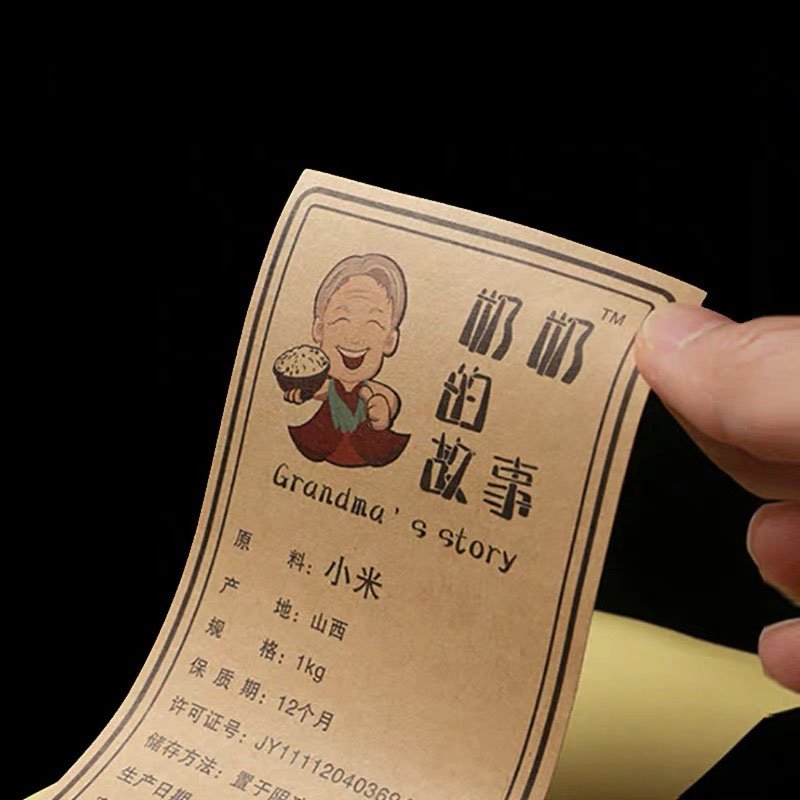 奶奶™
的
故事
Grandma's story
原 料：小米
产 地：山西
规 格：1kg
保 质 期：12个月
许可证号：JY1111204036
储存方法：置于阴
生产日期